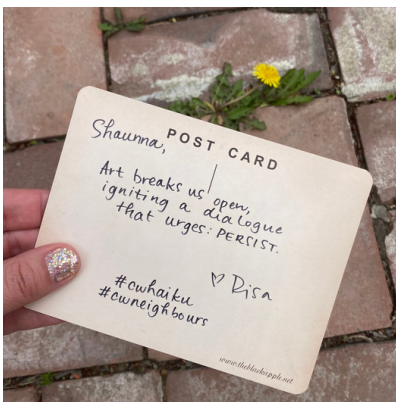 POST CARD
Shaunna,
Art breaks us open,
igniting a dialogue
that urges: PERSIST.
♡ Risa
#cwhaiku
#cwneighbours
www.theblackapple.net